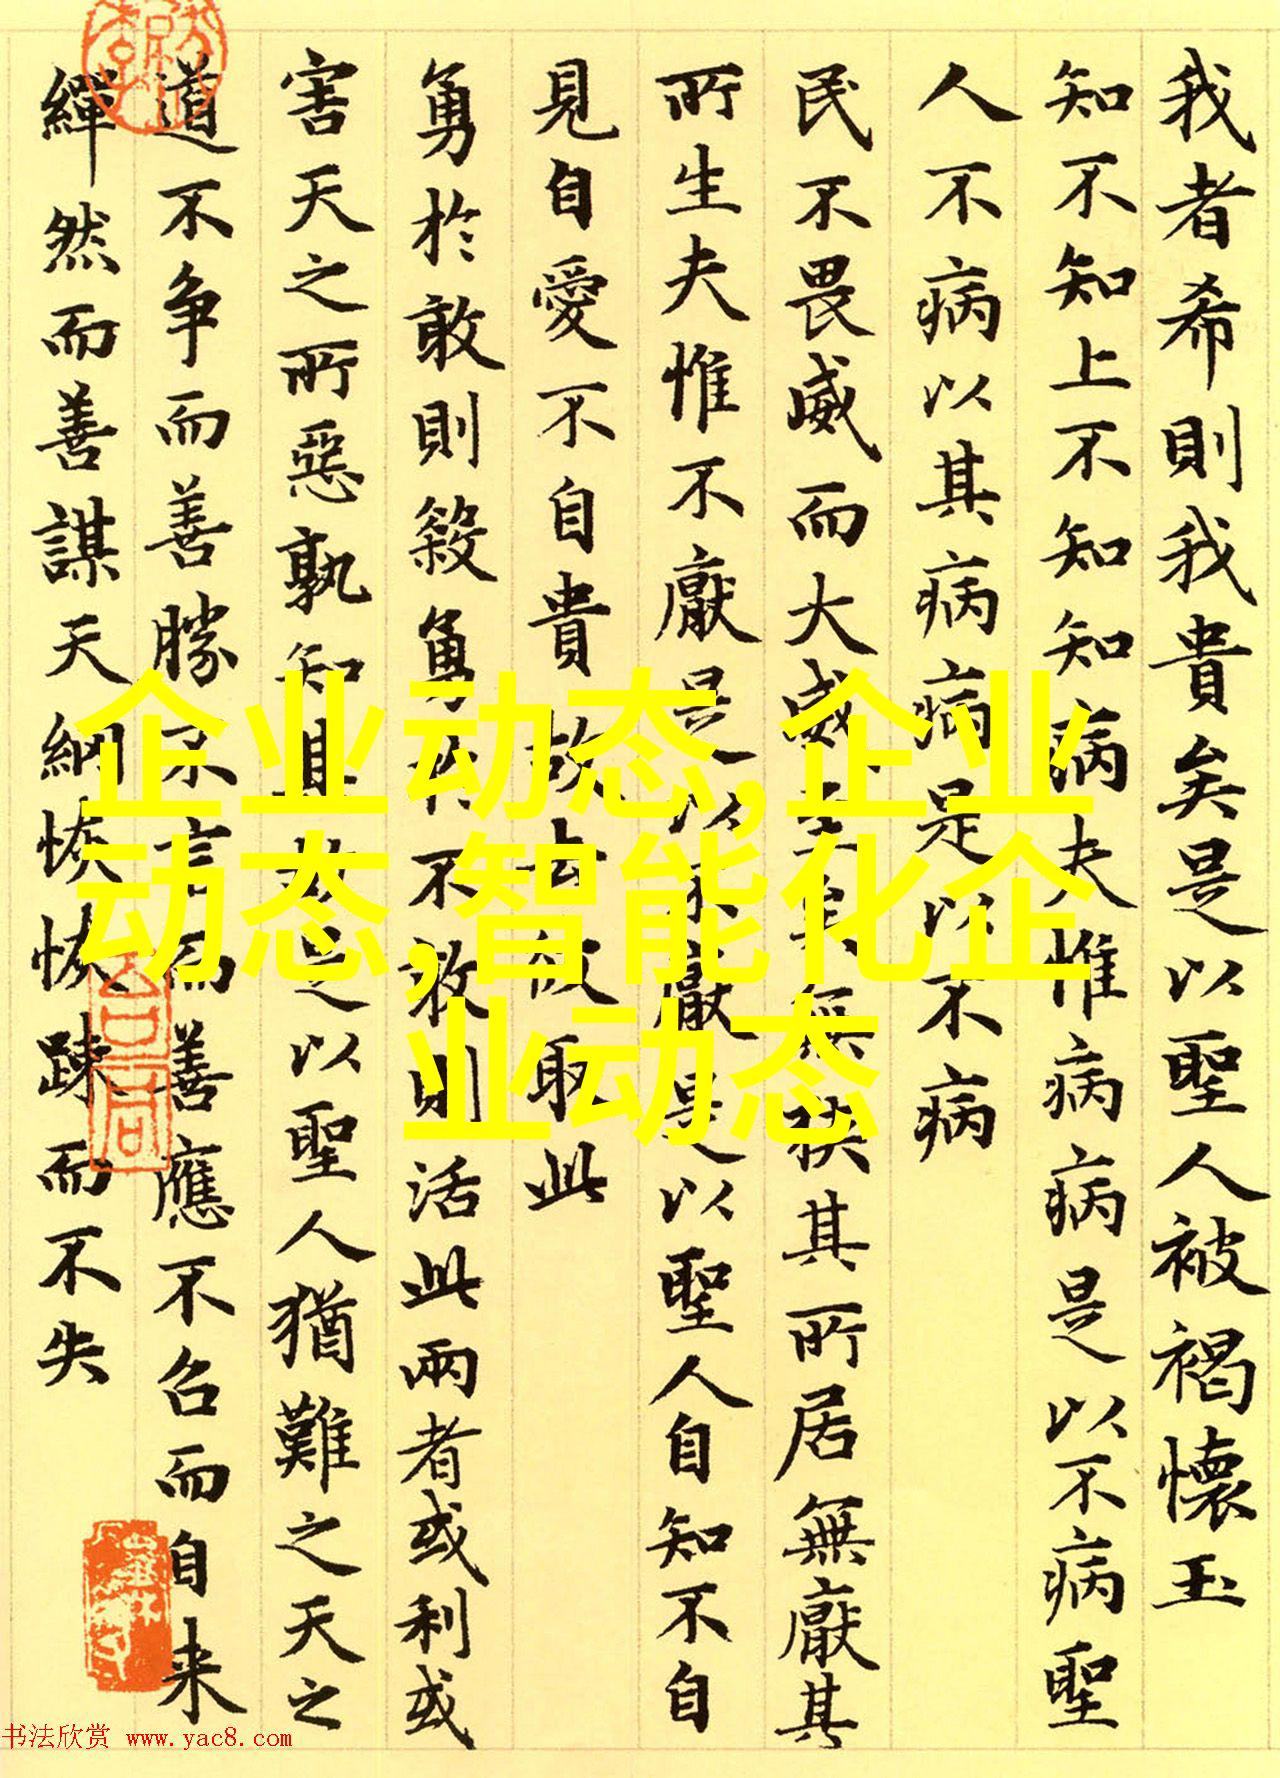 我者希則我貴矣是以聖人被褐懷玉
知不知上不知知病夫惟病病是以不病聖
人不病以其病病是以不病
民不畏威而大威至矣無狭其所居無厭其
所生夫惟不厭是以不厭是以聖人自知不自
見自愛不自貴故去彼取此
勇於敢則殺勇於不敢則活此兩者或利或
害天之所惡孰知其故是以聖人猶難之天之
道不争而善勝不言而善應不召而自来
繟然而善謀天網恢恢踈而不失
企业动态,企业
动态,智能化企
业动态
书法欣赏 www.yac8.com